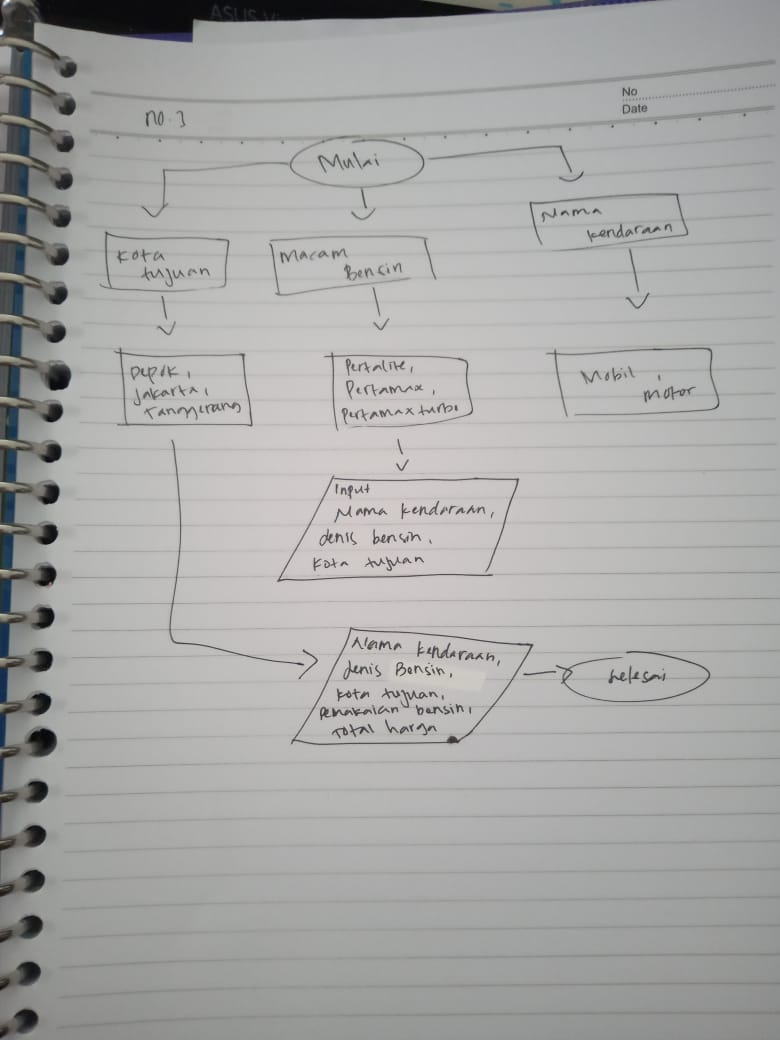 ASUS Vi
No
Date
no. 3
Mulai
Kota
tujuan
Macam
Bensin
Nama
kendaraan
Depok,
Jakarta,
Tanggerang
Pertalite,
Pertamax,
Pertamax turbo
Mobil,
motor
Input
Nama kendaraan,
Jenis bensin,
Kota tujuan
Nama kendaraan,
Jenis Bensin,
Kota tujuan,
Pemakaian bensin,
Total harga
Selesai